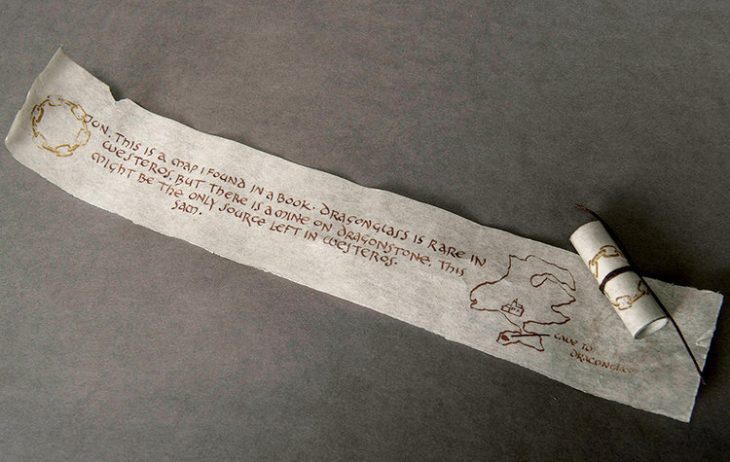 JON. THIS IS A MAP I FOUND IN A BOOK. DRAGONGLASS IS RARE IN
WESTEROS. BUT THERE IS A MINE ON DRAGONSTONE. THIS
MIGHT BE THE ONLY SOURCE LEFT IN WESTEROS.
SAM.
CAVE TO
DRAGONGLASS